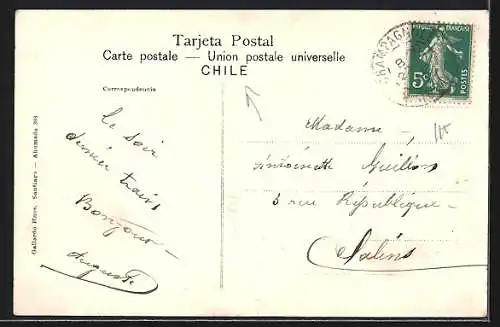 Tarjeta Postal
Carte postale — Union postale universelle
CHILE
Correspondencia
CHAMPAGN
RÉPUBLIQUE FRANÇAISE
5c
POSTES
Le soir
dernier train
Bonjour —
Auguste
Madame —
Antoinette Guillon
5 rue République —
Salins
Gallardo Hnos, Santiago — Ahumada